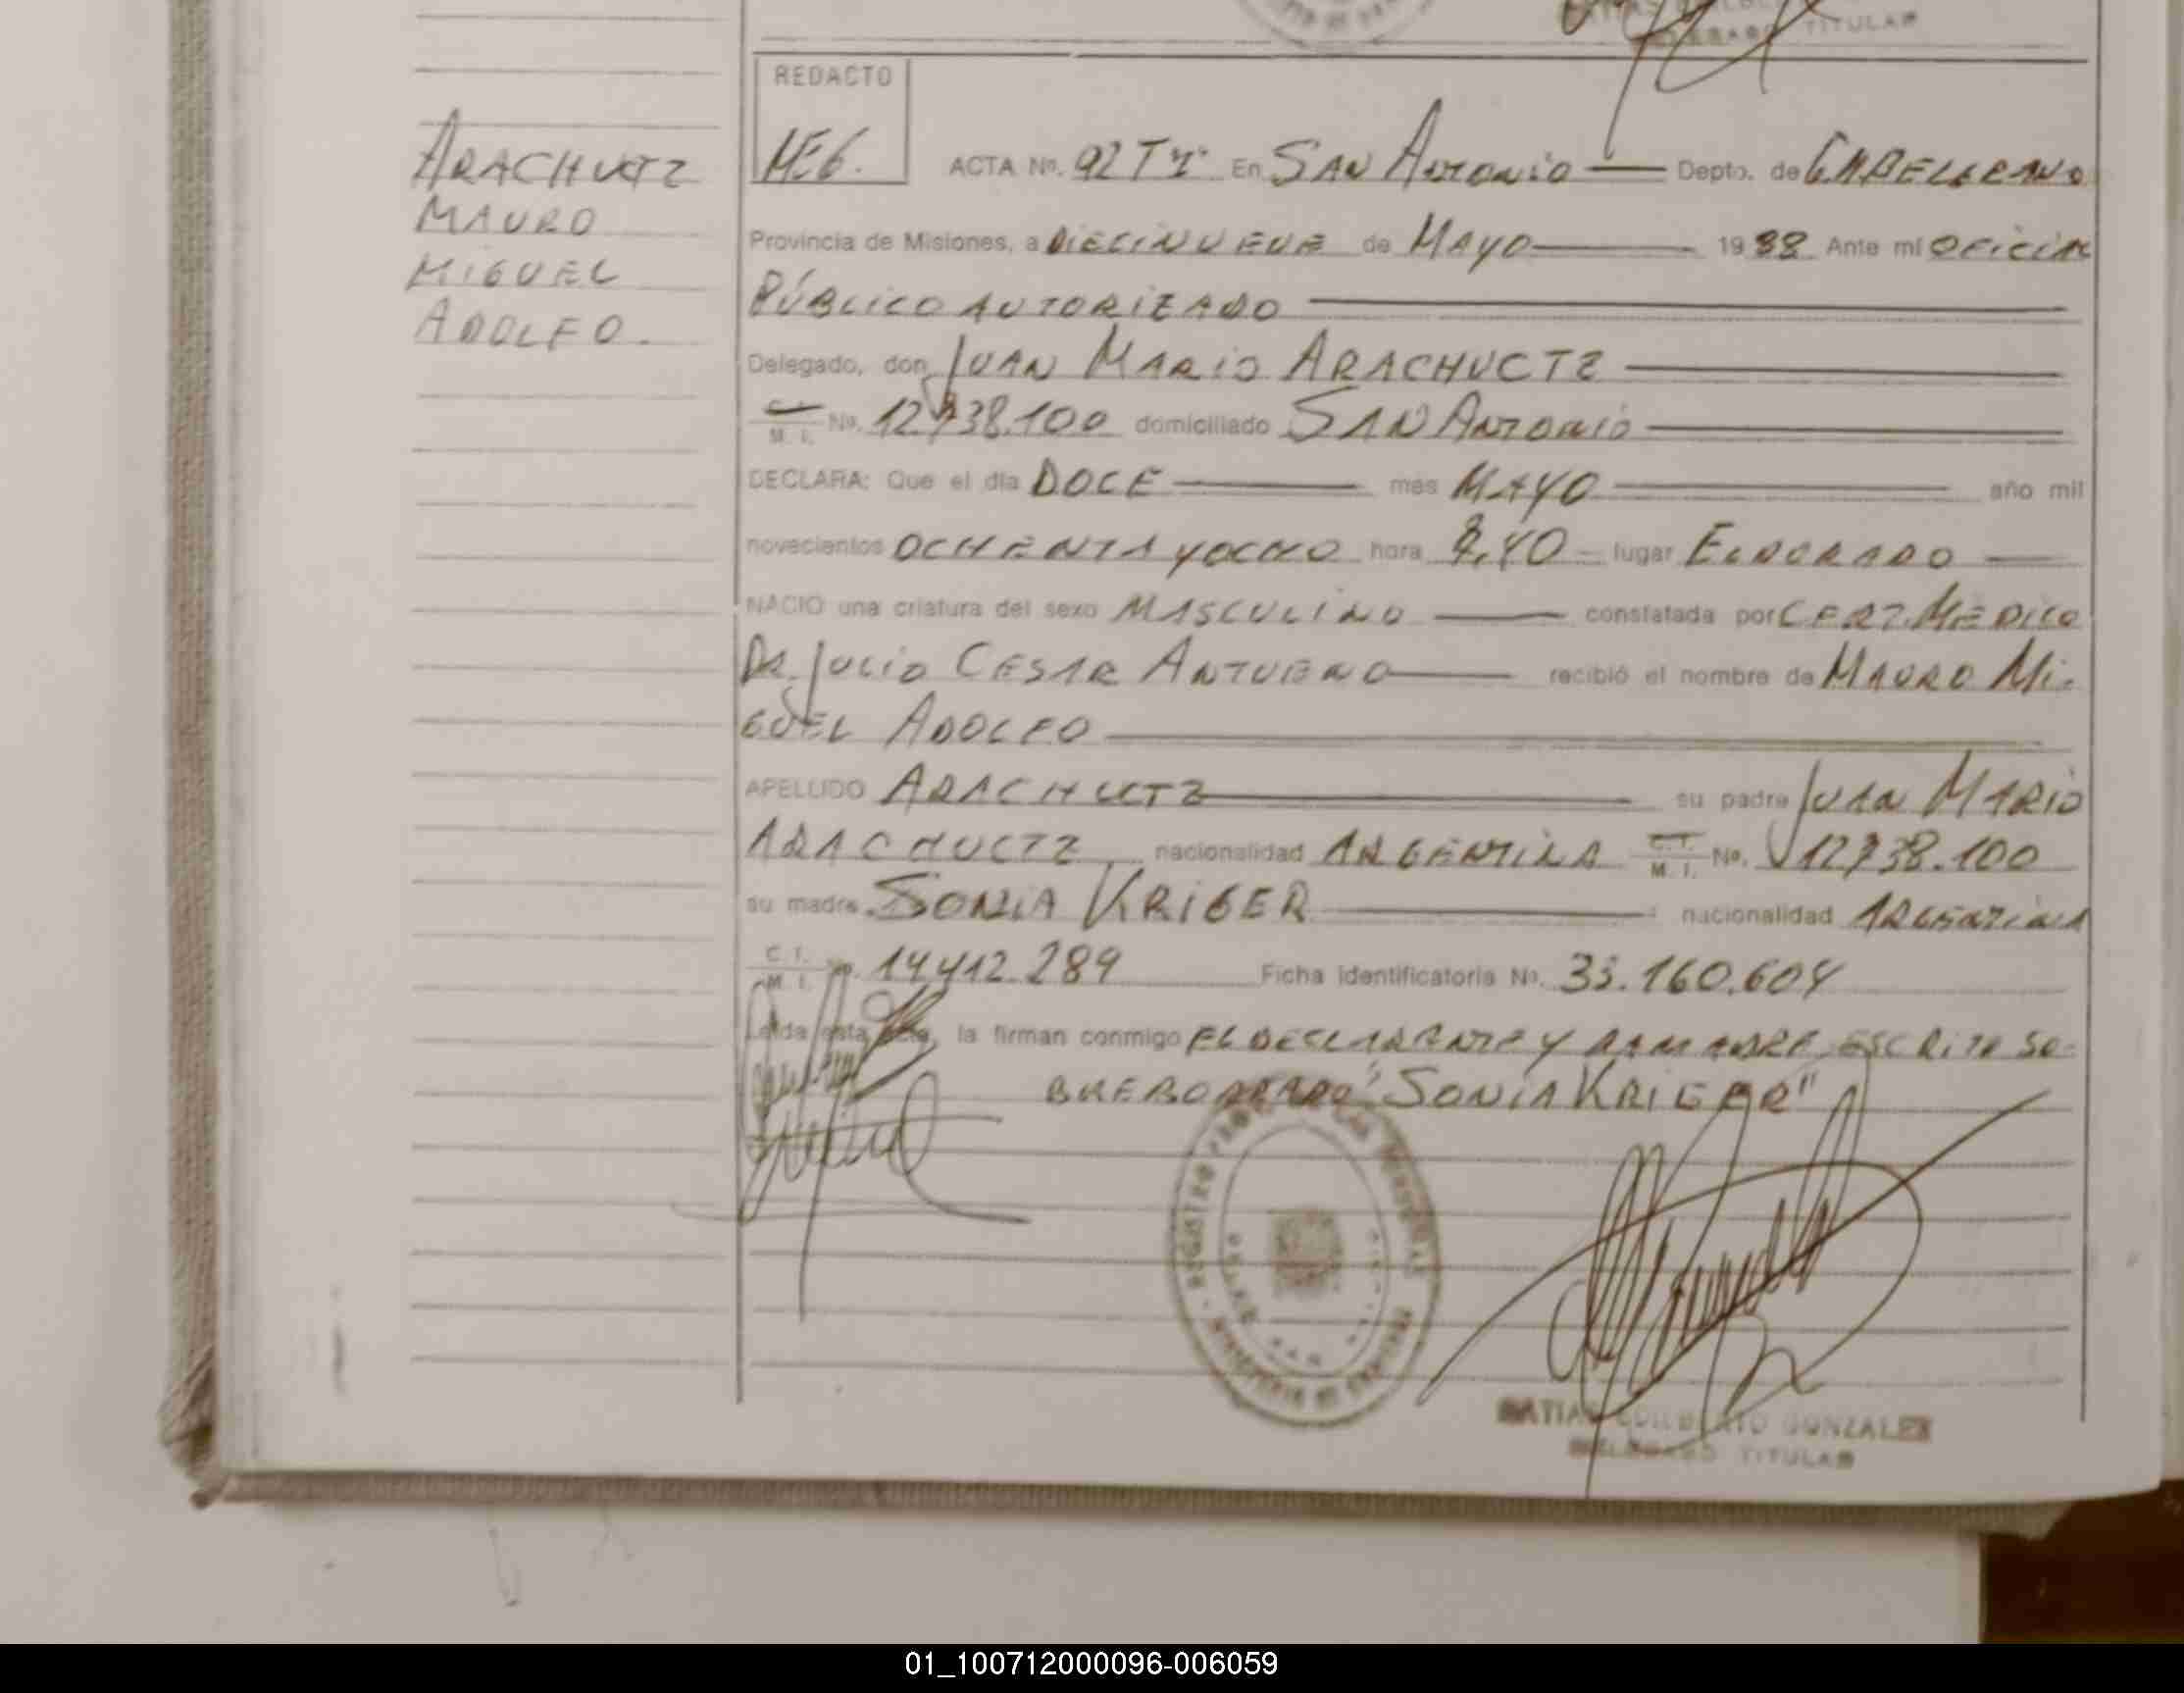 TITULAR
REDACTO
MEG.
ACTA No. 92 Tº1º En SAN ANTONIO Depto. de G.M.BELGRANO
Provincia de Misiones, a DIECINUEVE de MAYO 1988 Ante mí OFICIAL
PÚBLICO AUTORIZADO
Delegado, don JUAN MARIO ARACHUCTZ
C. I. M. I. No. 12.738.100 domiciliado SAN ANTONIO
DECLARA: Que el día DOCE mes MAYO año mil
novecientos OCHENTA y OCHO hora 8,40 lugar ELDORADO
NACIO una criatura del sexo MASCULINO constatada por CERT. MÉDICO
DR. JULIO CESAR ANTUENO recibió el nombre de MAURO MI-
GUEL ADOLFO
APELLIDO ARACHUCTZ su padre JUAN MARIO
ARACHUCTZ nacionalidad ARGENTINA C. I. M. I. No. 12.738.100
su madre SONIA KRIGER nacionalidad ARGENTINA
C. I. M. I. No. 14.412.289 Ficha identificatoria No. 33.160.604
Leída esta acta, la firman conmigo EL DECLARANTE Y LA MADRE, ESCRITO SO-
BREBORRADO "SONIA KRIGER"
ARACHUCTZ
MAURO
MIGUEL
ADOLFO.
REGISTRO
MATIAS EDILBERTO GONZALEZ
DELEGADO TITULAR
01_100712000096-006059